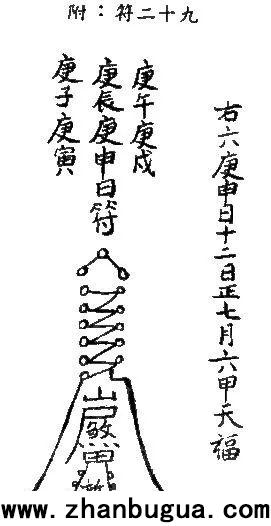 附：符二十九
右六庚申日十二日正七月六甲天福
庚午庚戌
庚辰庚申日符
庚子庚寅
www.zhanbugua.com